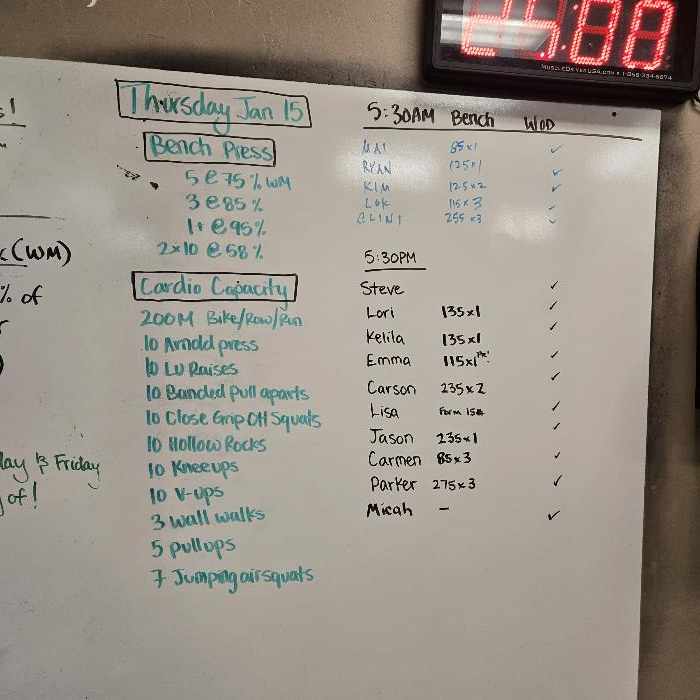 s!
Thursday Jan 15
Bench Press
5 @ 75% WM
3 @ 85%
1+ @ 95%
2x10 @ 58%
Cardio Capacity
200M Bike/Row/Run
10 Arnold press
10 LU Raises
10 Banded Pull aparts
10 Close Grip OH Squats
10 Hollow Rocks
10 Knee ups
10 V-ups
3 wall walks
5 pull ups
7 Jumping air squats
(WM)
% of
lay & Friday
of!
5:30AM Bench WOD
RYAN 125x1 ✓
KIM 125x2 ✓
LOK 115x3 ✓
CLINT 255x3 ✓
5:30PM
Steve ✓
Lori 135x1 ✓
Kelila 135x1 ✓
Emma 115x1 PR! ✓
Carson 235x2 ✓
Lisa Form 15# ✓
Jason 235x1 ✓
Carmen 85x3 ✓
Parker 275x3 ✓
Micah - ✓
25:00